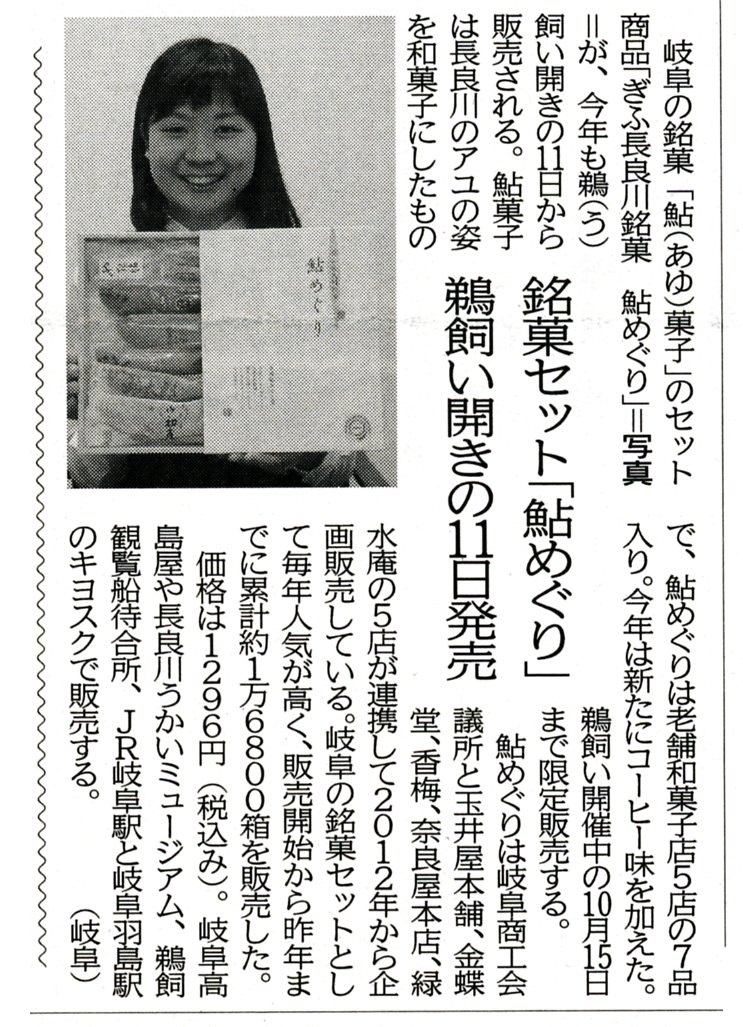 銘菓セット「鮎めぐり」
鵜飼い開きの11日発売
岐阜の銘菓「鮎(あゆ)菓子」のセット
商品「ぎふ長良川銘菓　鮎めぐり」＝写真
＝が、今年も鵜(う)
飼い開きの11日から
販売される。鮎菓子
は長良川のアユの姿
を和菓子にしたもの
で、鮎めぐりは老舗和菓子店5店の7品
入り。今年は新たにコーヒー味を加えた。
鵜飼い開催中の10月15日
まで限定販売する。
鮎めぐりは岐阜商工会
議所と玉井屋本舗、金蝶
堂、香梅、奈良屋本店、緑
水庵の5店が連携して2012年から企
画販売している。岐阜の銘菓セットとし
て毎年人気が高く、販売開始から昨年ま
でに累計約1万6800箱を販売した。
価格は1296円（税込み）。岐阜高
島屋や長良川うかいミュージアム、鵜飼
観覧船待合所、JR岐阜駅と岐阜羽島駅
のキヨスクで販売する。　（岐阜）
鮎めぐり